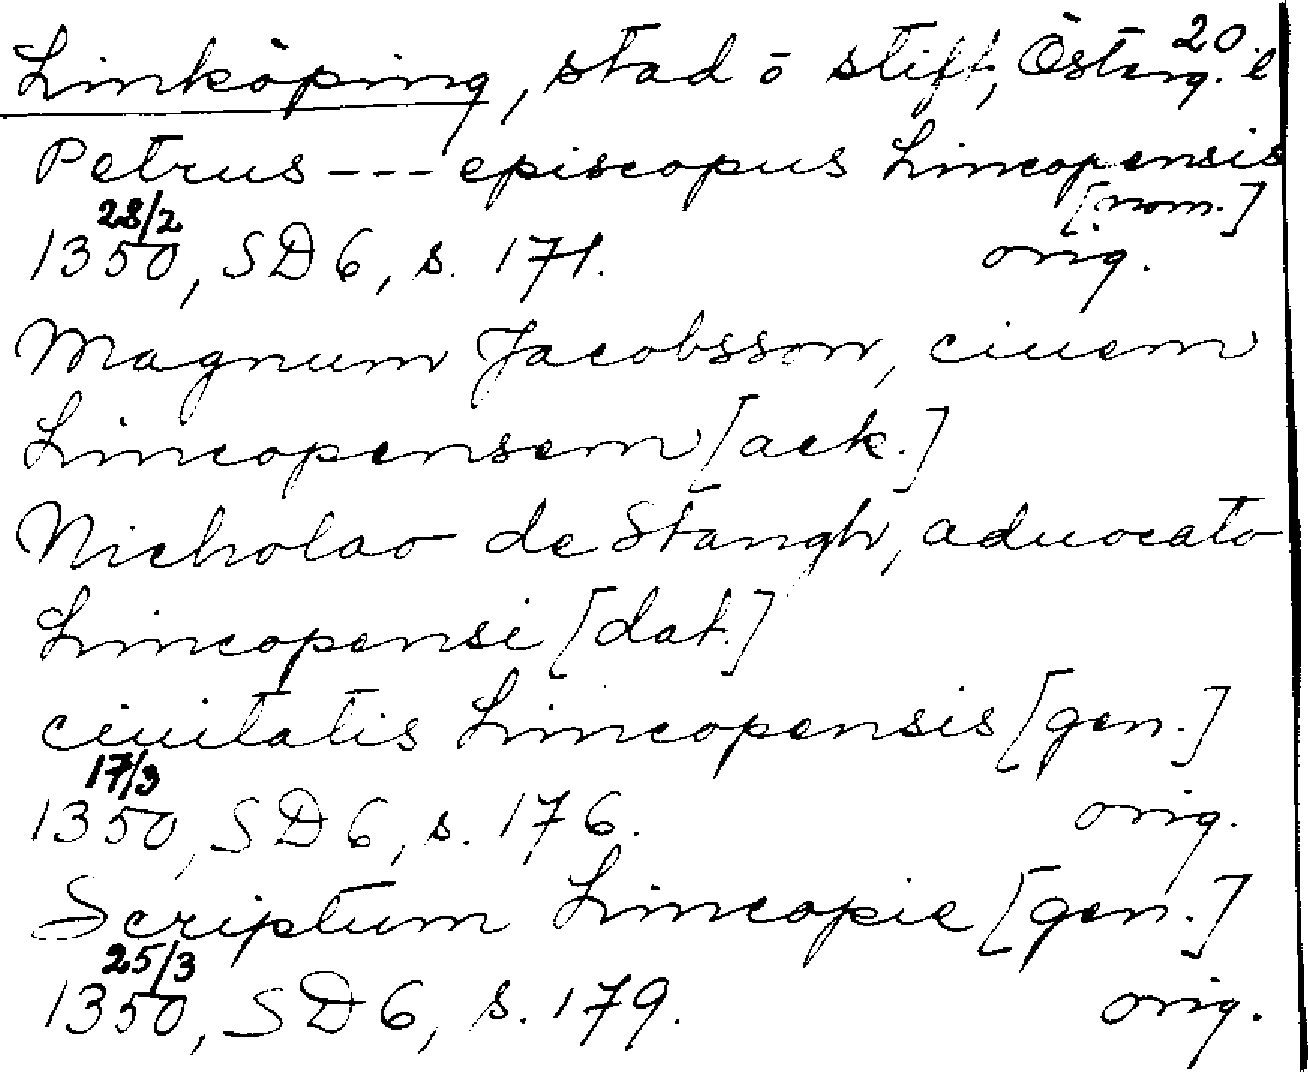 20.
Linköping, stad o stift, Österg. l
Petrus --- episcopus Lincopensis
[nom.]
28/2
1350, SD 6, s. 171. orig.
Magnum Jacobsson, ciuem
Lincopensem [ack.]
Nicholao de Stangh, aduocato
Lincopensi [dat.]
ciuitatis Lincopensis [gen.]
17/3
1350, SD 6, s. 176. orig.
Scriptum Lincopie [gen.]
25/3
1350, SD 6, s. 179. orig.